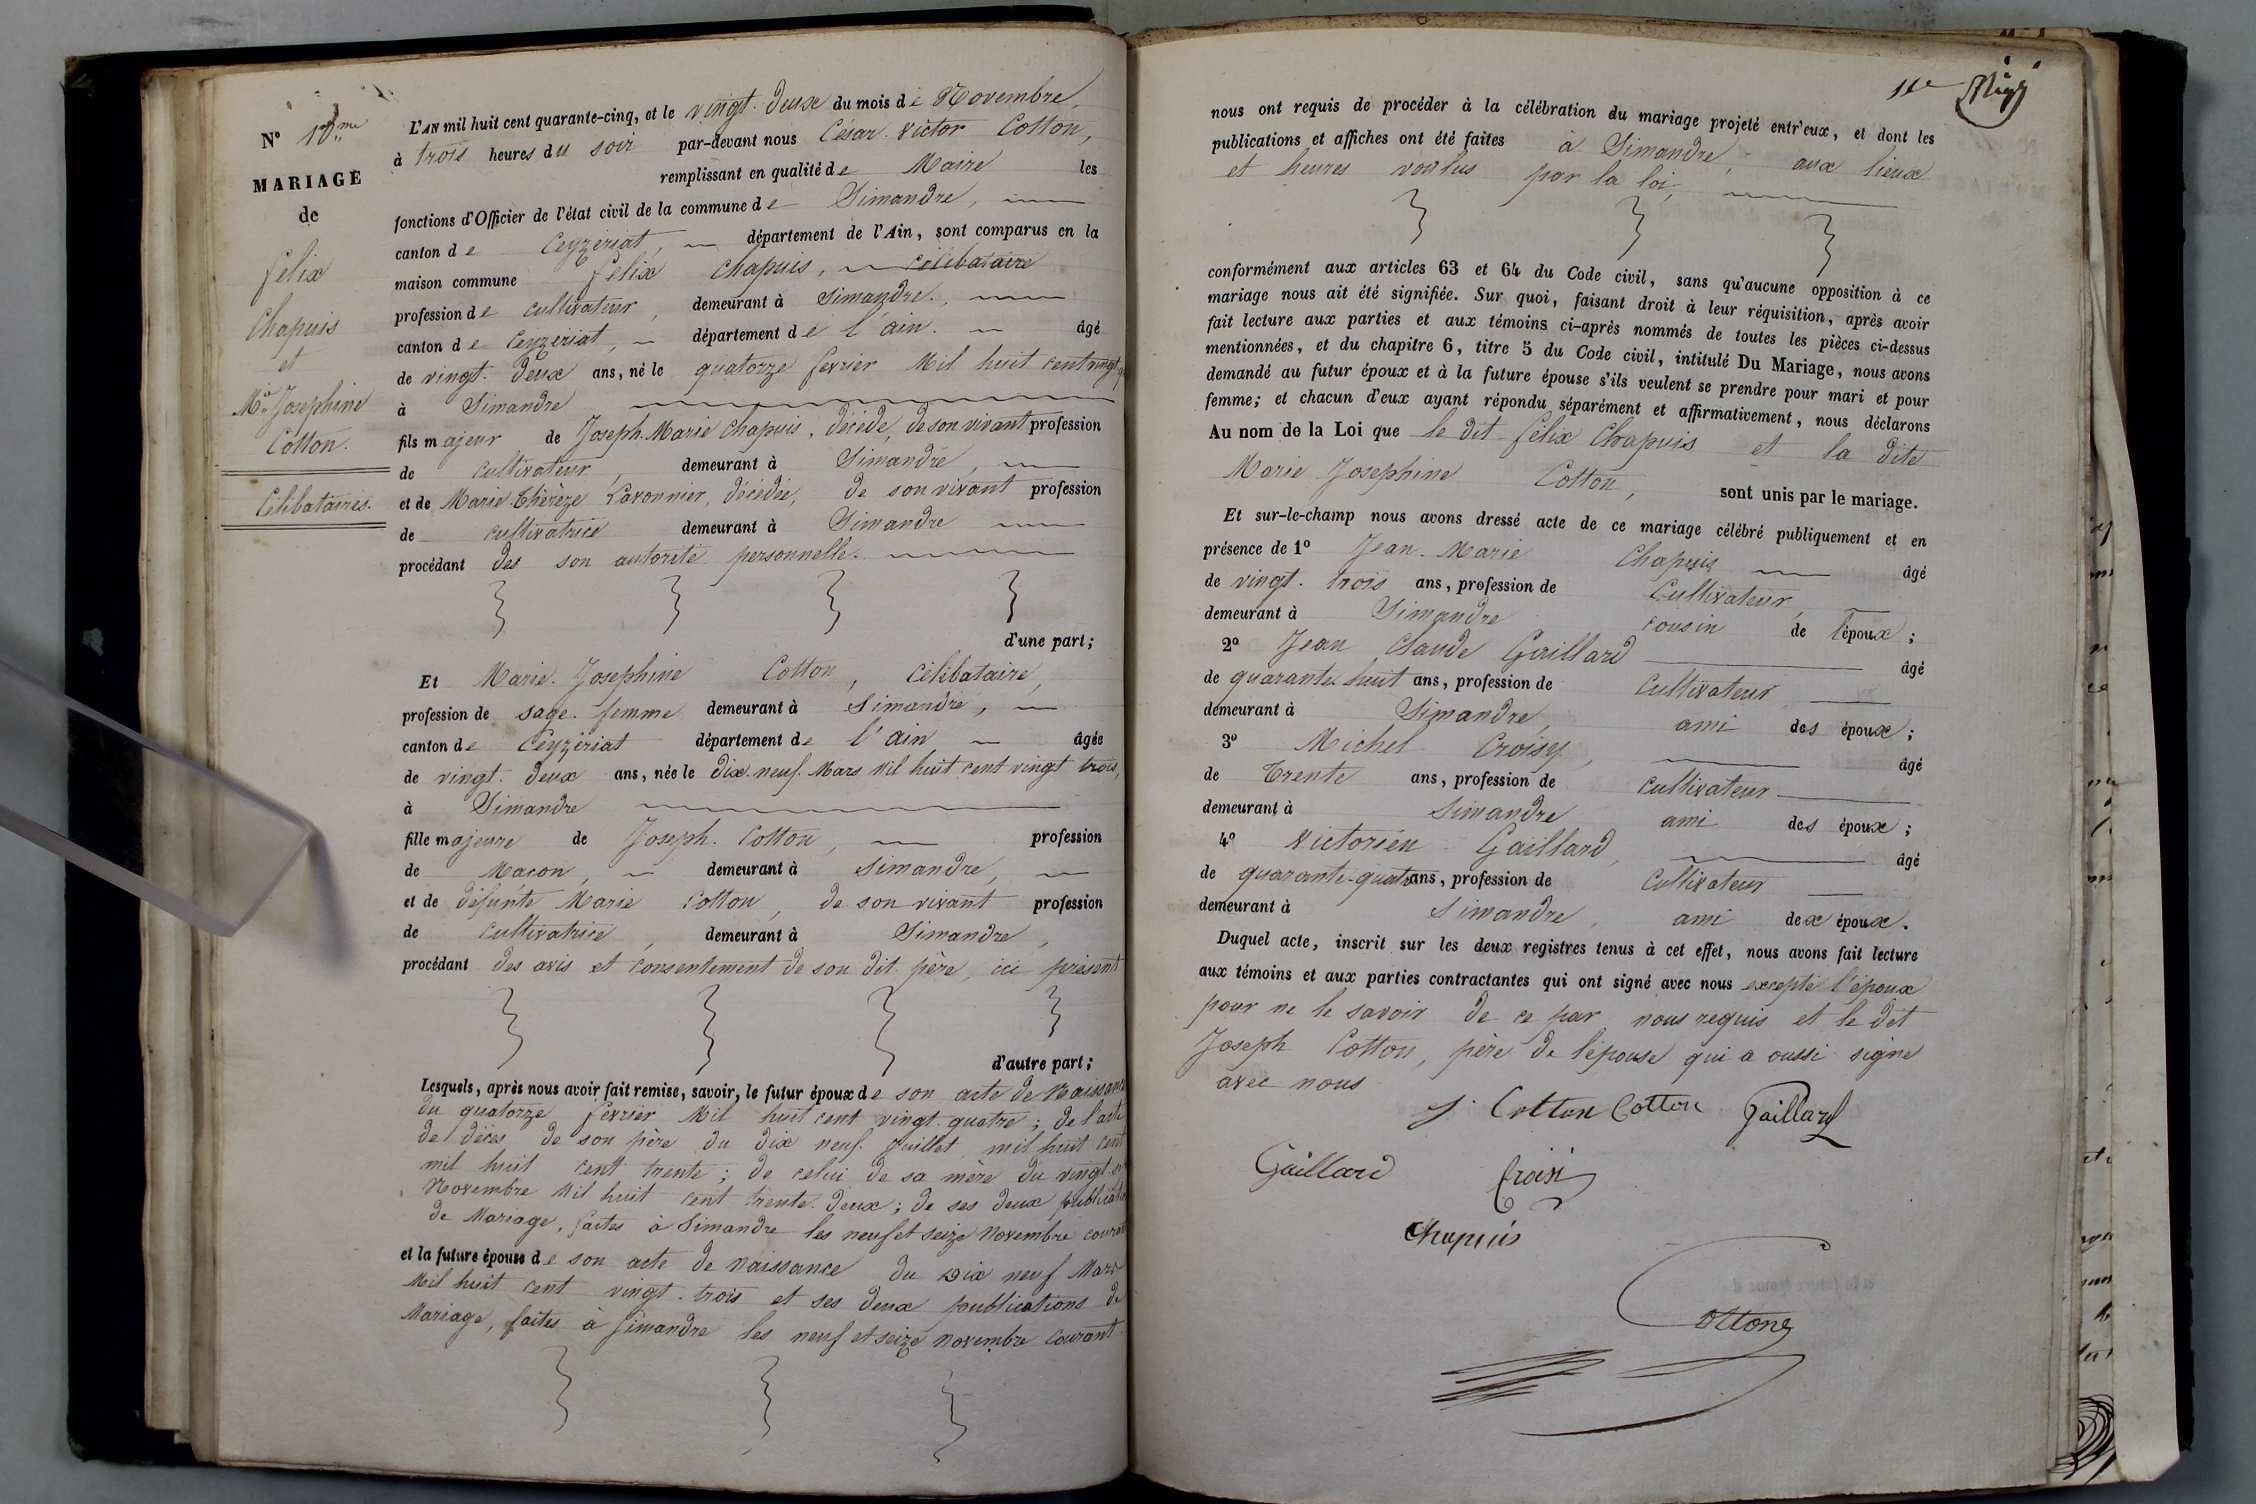 N° 10me
MARIAGE
de
felix
Chapuis
et
Mie Josephine
Cotton.
Célibataires.
L'AN mil huit cent quarante-cinq, et le vingt-deux du mois de Novembre,
à trois heures du soir par-devant nous César-Victor Cotton,
remplissant en qualité de Maire les
fonctions d'Officier de l'état civil de la commune de Simandre,
canton de Ceyzériat, département de l'Ain, sont comparus en la
maison commune felix Chapuis, célibataire
profession de cultivateur, demeurant à Simandre,
canton de Ceyzériat, département de l'ain. âgé
de vingt-deux ans, né le quatorze fevrier Mil huit cent vingt
à Simandre
fils majeur de Joseph-Marie Chapuis, décédé, de son vivant profession
de cultivateur, demeurant à Simandre,
et de Marie Thérèze Lavonnier, décédée, de son vivant profession
de cultivatrice demeurant à Simandre
procédant des son autorité personnelle.
d'une part;
Et Marie-Josephine Cotton, Célibataire,
profession de sage-femme demeurant à Simandre,
canton de Ceyzériat département de l'ain âgée
de vingt-deux ans, née le dix-neuf Mars Mil huit cent vingt trois,
à Simandre
fille majeure de Joseph Cotton, profession
de Macon, demeurant à Simandre,
et de défunte Marie Cotton, de son vivant profession
de cultivatrice, demeurant à Simandre,
procédant des avis et consentement de son dit père, ici présent
d'autre part;
Lesquels, après nous avoir fait remise, savoir, le futur époux de son acte de Naissance
du quatorze fevrier Mil huit cent vingt-quatre; de l'acte
de décès de son père du dix neuf Juillet mil huit cent
mil huit cent trente; de celui de sa mère du vingt
Novembre Mil huit cent trente-deux; de ses deux publications
de Mariage, faites à Simandre les neuf et seize Novembre courant
et la future épouse de son acte de Naissance du Dix neuf Mars
Mil huit cent vingt-trois et ses deux publications de
Mariage, faites à Simandre les neuf et seize novembre courant
11e
nous ont requis de procéder à la célébration du mariage projeté entr'eux, et dont les
publications et affiches ont été faites à Simandre, aux lieux
et heures voulus par la loi,
conformément aux articles 63 et 64 du Code civil, sans qu'aucune opposition à ce
mariage nous ait été signifiée. Sur quoi, faisant droit à leur réquisition, après avoir
fait lecture aux parties et aux témoins ci-après nommés de toutes les pièces ci-dessus
mentionnées, et du chapitre 6, titre 5 du Code civil, intitulé Du Mariage, nous avons
demandé au futur époux et à la future épouse s'ils veulent se prendre pour mari et pour
femme; et chacun d'eux ayant répondu séparément et affirmativement, nous déclarons
Au nom de la Loi que le dit felix Chapuis et la dite
Marie Josephine Cotton, sont unis par le mariage.
Et sur-le-champ nous avons dressé acte de ce mariage célébré publiquement et en
présence de 1° Jean-Marie Chapuis âgé
de vingt-trois ans, profession de Cultivateur,
demeurant à Simandre cousin de l'époux;
2° Jean Claude Gaillard âgé
de quarante huit ans, profession de cultivateur,
demeurant à Simandre, ami des époux;
3° Michel Croisy, âgé
de Trente ans, profession de cultivateur
demeurant à Simandre ami des époux;
4° Victorien Gaillard, âgé
de quarante-quatre ans, profession de Cultivateur
demeurant à Simandre, ami des époux.
Duquel acte, inscrit sur les deux registres tenus à cet effet, nous avons fait lecture
aux témoins et aux parties contractantes qui ont signé avec nous excepté l'époux
pour ne le savoir de ce par nous requis et le dit
Joseph Cotton, père de l'épouse qui a aussi signé
avec nous
J. Cotton Cotton Gaillard
Gaillard Croisi
Chapuis
Cotton